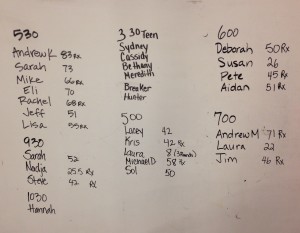 530
Andrew K 83 Rx
Sarah 73
Mike 66 Rx
Eli 70
Rachel 68 Rx
Jeff 51
Lisa 55 Rx
930
Sarah 52
Nadja 255 Rx
Steve 42 Rx
1030
Hannah
3 30 Teen
Sydney
Cassidy
Bethany
Meredith
Breaker
Hunter
500
Lacey 42
Kris 42 Rx
Laura 8
Michael D 58 Rx
Sol 50
600
Deborah 50 Rx
Susan 26
Pete 45 Rx
Aidan 51 Rx
700
Andrew M 71 Rx
Laura 22
Jim 46 Rx